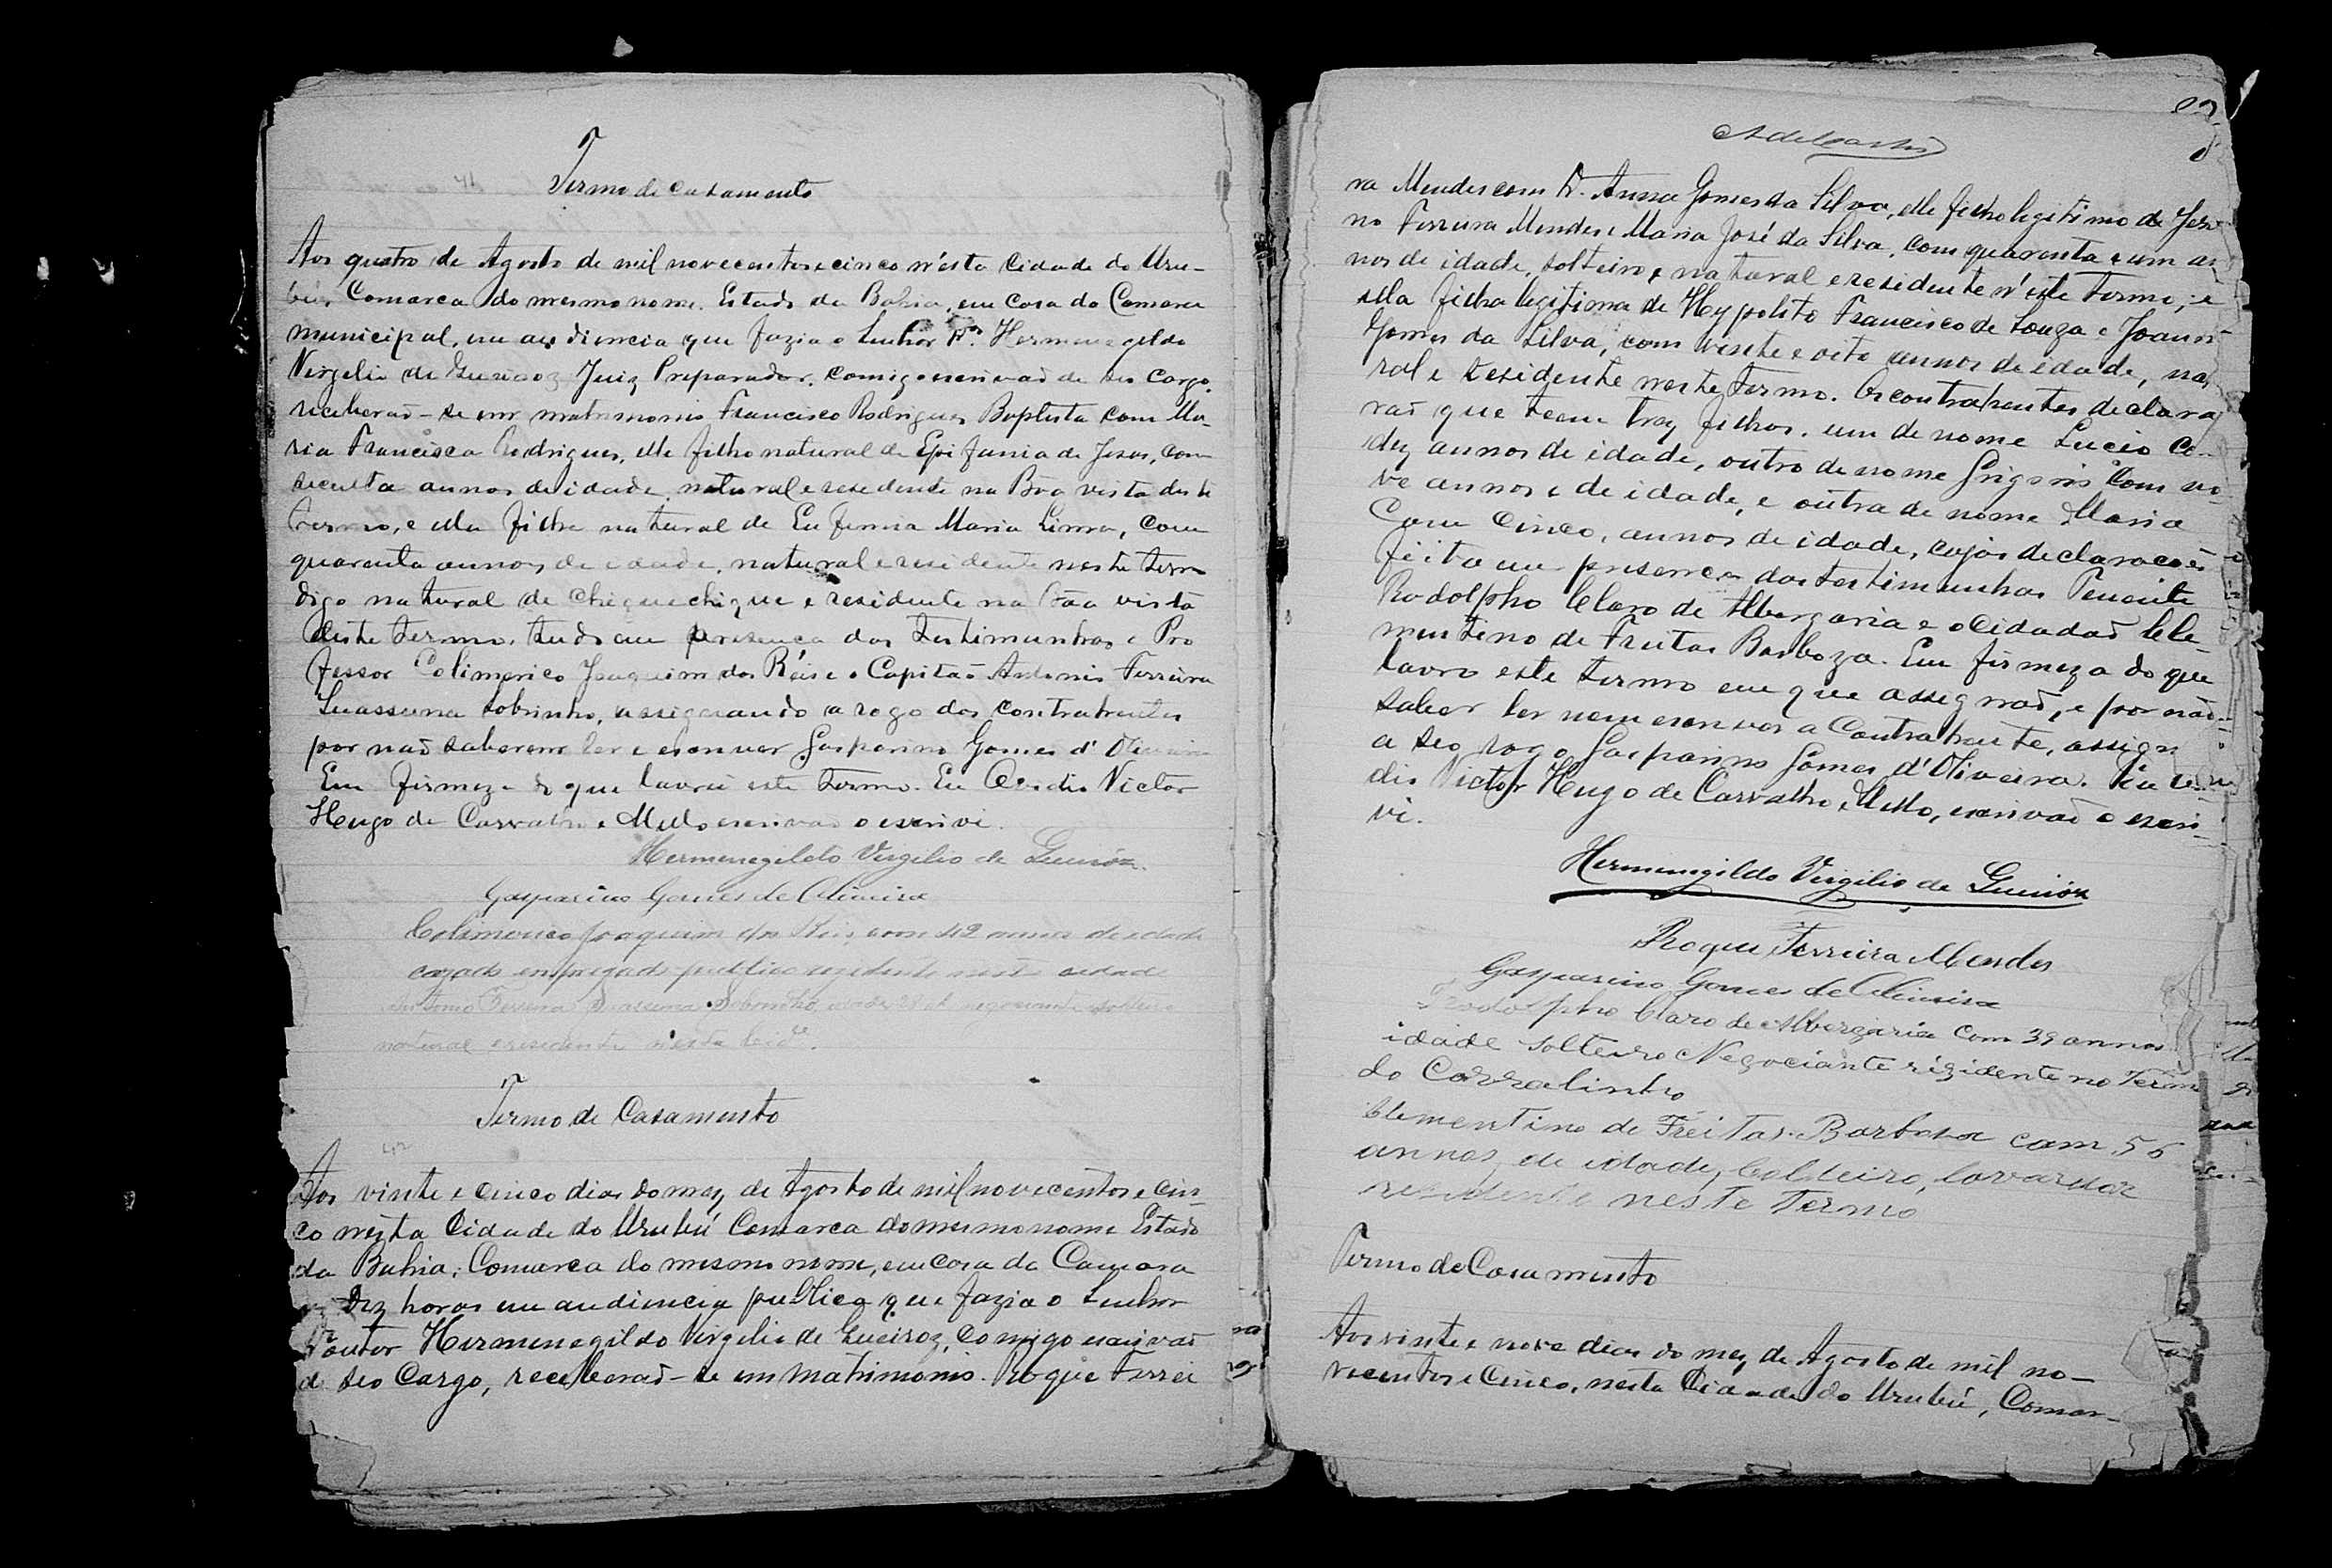 41
Termo de Casamento
Aos quatro de Agosto de mil novecentos e cinco n'esta Cidade do Uru-
bú, Comarca do mesmo nome, Estado da Bahia, em casa da Camara
municipal, em audiencia que fazia o Senhor Dr. Hermenegildo
Virgilio de Queiroz Juiz Preparador, comigo escrivaõ de seo Cargo,
receberaõ-se em matrimonio Francisco Rodrigues Baptista com Ma-
ria Francisca Rodrigues, elle filho natural de Epifania de Jesus, com
secenta annos de idade, natural e residente na Bôa vista deste
termo, e ella filha natural de Eufemia Maria Lima, com
quarenta annos de idade, natural e residente neste termo
digo natural de Chiquechique e residente na Bôa vista
deste termo, tudo em presença das testimunhas o Pro
fessor Colimerico Joaquim dos Reis e o Capitaõ Antonio Ferreira
Suassuna Sobrinho, assignando a rogo dos contrahentes
por naõ saberem ler e escrever Gasparino Gomes d'Oliveira
Em firmeza do que lavrei este termo. Eu Victor
Hugo de Carvalho e Mello escrivaõ o escrivi.
Hermenegildo Virgilio de Queiróz.
Gasparino Gomes de Oliveira
Colimerico Joaquim dos Reis, com 42 annos de idade
cazado empregado publico rezidente nesta cidade
Antonio Ferreira Suassuna Sobrinho, negociante solteiro
natural e residente n'esta Cide.
Termo de Casamento
42
Aos vinte e cinco dias do mez de Agosto de mil novecentos e cin-
co nesta Cidade do Urubú Comarca do mesmo nome Estado
da Bahia, Comarca do mesmo nome, em casa da Camara
as Dez horas em audiencia publica que fazia o Senhor
Doutor Hermenegildo Virgilio de Queiroz, comigo escrivaõ
de seo Cargo, receberaõ-se em matrimonio. Roque Ferrei
ra Mendes com D. Anna Gomes da Silva, elle filho legitimo de
no Ferreira Mendes e Maria José da Silva, com quarenta e um an
nos de idade, solteiro, natural e residente n'este termo; e
ella filha legitima de Hypolito Francisco de Souza e Joanna
Gomes da Silva, com vinte e oito annos de idade, natu
ral e residente neste termo. Os contrahentes declara
raõ que teem trez filhos, um de nome Lucio com
dez annos de idade, outro de nome Grigorio com no
ve annos e de idade, e outra de nome Maria
com cinco, annos de idade, cujas declaracoẽs
feita em presença das testimunhas Tenente
Rodolpho Claro de Albergaria e o Cidadaõ Cle-
mentino de Freitas Barboza. Em firmeza do que
lavro este termo em que assignaõ, e por naõ
saber ler nem escrever a Contrahente, assigna
a seo rogo Gasparino Gomes d'Oliveira. Eu
dio Victor Hugo de Carvalho e Mello, escrivaõ o escri-
vi.
Hermenegildo Virgilio de Queiróz
Roque Ferreira Mendes
Gasparino Gomes de Oliveira
Rodolpho Claro de Albergaria com 39 annos
idade solteiro Negociante rizidente no Termo
do Corralinho
Clementino de Freitas Barbosa com 56
annos de idade, Colteiro, lavardor
residente neste termo
Termo de Casamento
Aos vinte e nove dias do mez de Agosto de mil no-
vecentos e Cinco, nesta Cidade do Urubú, Comar-